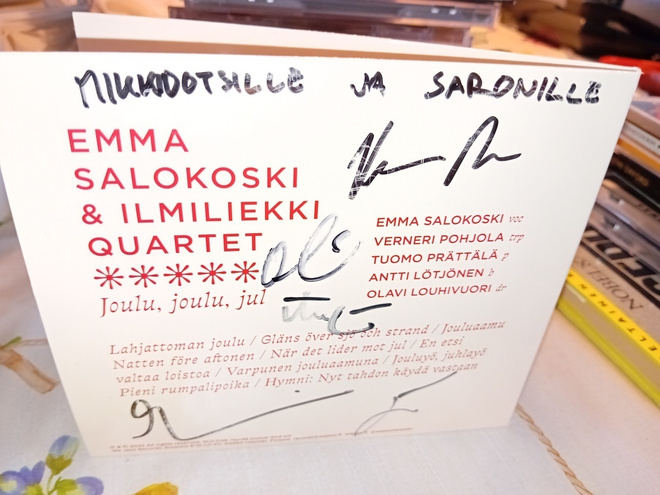 MIKKODOTSILLE JA SARONILLE
EMMA
SALOKOSKI
& ILMILIEKKI
QUARTET
✳✳✳✳✳
Joulu, joulu, jul
EMMA SALOKOSKI voc
VERNERI POHJOLA trp
TUOMO PRÄTTÄLÄ p
ANTTI LÖTJÖNEN b
OLAVI LOUHIVUORI dr
Lahjattoman joulu / Gläns över sjö och strand / Jouluaamu
Natten före aftonen / När det lider mot jul / En etsi
valtaa loistoa / Varpunen jouluaamuna / Jouluyö, juhlayö
Pieni rumpalipoika / Hymni: Nyt tahdon käydä vastaan